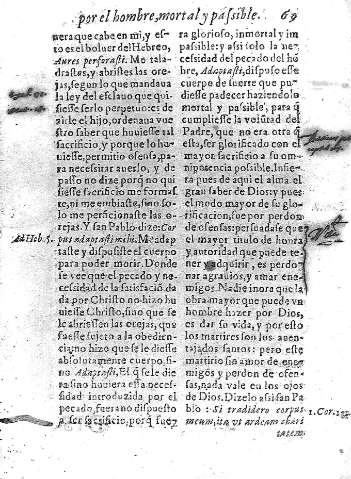 por el hombre, mortal y passible. 69
nera que cabe en mi, y es-
to es el boluer del Hebreo,
Aures perforasti. Me tala-
drastes, y abristes las ore-
jas, segun lo que mandaua
la ley del esclauo que qui-
siesse serlo perpetuo: es de
zirle el hijo, ordenaua vue
stro saber que huuiesse tal
sacrificio, y porque lo hu-
uiesse, permitio ofensa, pa-
ra necesitar a uerlo, y de
passo no dize porq̃ no qui
siesse sacrificio me formas-
te, ni me embiaste, sino so-
lo me perficionaste las o-
rejas. Y san Pablo dize: Cor
Ad Heb. 5. pus adaptasti mihi. Me adap
taste y dispusiste el cuerpo
para poder morir. Donde
se vee que el pecado y ne-
cessidad de la satisfaciõ da
da por Christo no hizo hu
uiesse Christo, sino que se
le abriessen las orejas, que
fue se sujetarlo a la obedien
cia, no hizo que se le diesse
absolutamente cuerpo, si-
no Adaptasti. El q̃ se le die
ra sino huuiera essa neces-
sidad introduzida por el
pecado, fuera no dispuesto
a ser sacrificio, porq̃ fuez
ra glorioso, inmortal y im
passible: y assi solo la ne-
cessidad del pecado del hõ
bre, Adaptasti, dispuso esse
cuerpo de suerte que pu-
diesse padecer haziendolo
mortal y passible, para q̃
cumpliesse la volũtad del
Padre, que no era otra q̃
esta, ser glorificado con el
mayor sacrificio a su om-
nipotencia possible. Infie-
ra pues de aqui el alma el
gran saber de Dios: y pues
el modo mayor de su glo-
rificacion, fue por perdon
de ofensas: persuadase que
el mayor titulo de honra
y autoridad que puede te-
ner y adquirir, es perdo-
nar agrauios, y amar ene-
migos. Nadie inora que la
obra mayor que puede vn
hombre hazer por Dios,
es dar su vida, y por esto
los martires son los auen-
tajados santos: pero este
martirio sin amor de ene-
migos y perdon de ofen-
sas, nada vale en los ojos
de Dios. Dizelo assi san Pa
blo: Si tradidero corpus 1. Cor. 13.
meum, ita vt ardeam chari
tatem